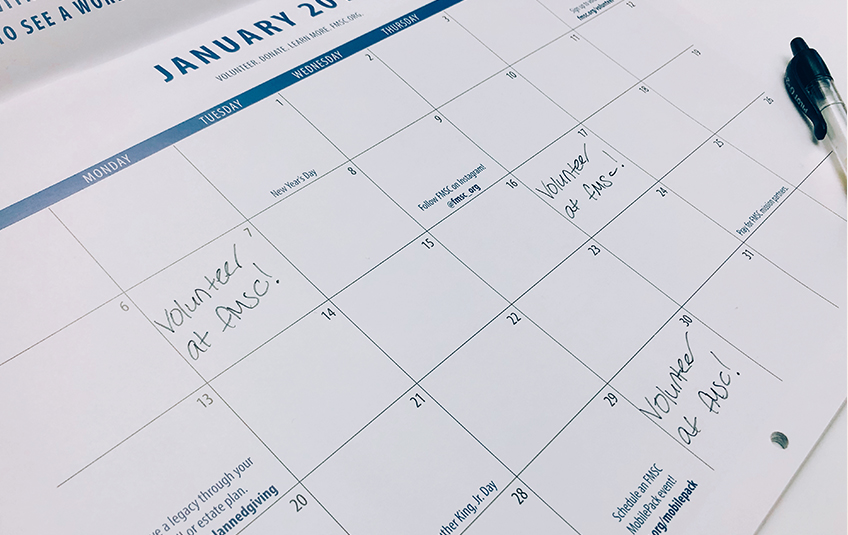 TO SEE A
JANUARY 20
VOLUNTEER. DONATE. LEARN MORE. FMSC.ORG.
MONDAY
TUESDAY
WEDNESDAY
THURSDAY
1
New Year's Day
2
3
Sign up to
fmsc.org/volunteer
6
7
Volunteer
at fmsc!
8
9
Follow FMSC on Instagram!
@fmsc_org
10
11
12
13
14
15
16
17
Volunteer
at fmsc!
18
19
a legacy through your
or estate plan.
20
21
ther King, Jr. Day
22
23
24
25
Pray for FMSC mission partners.
26
28
29
Schedule an FMSC
MobilePack event!
org/mobilepack
30
Volunteer
at fmsc!
31